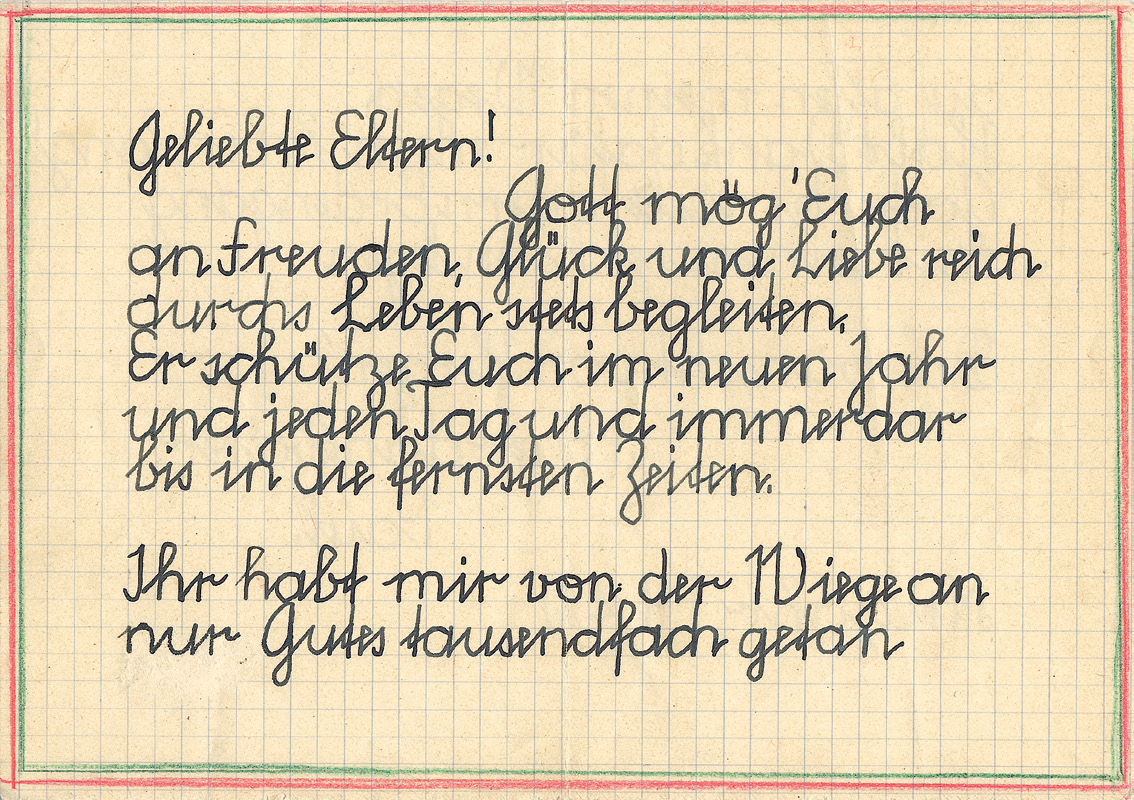 Geliebte Eltern!
Gott mög' Euch
an Freuden, Glück und Liebe reich
durchs Leben stets begleiten.
Er schütze Euch im neuen Jahr
und jeden Tag und immerdar
bis in die fernsten Zeiten.
Ihr habt mir von der Wiege an
nur Gutes tausendfach getan